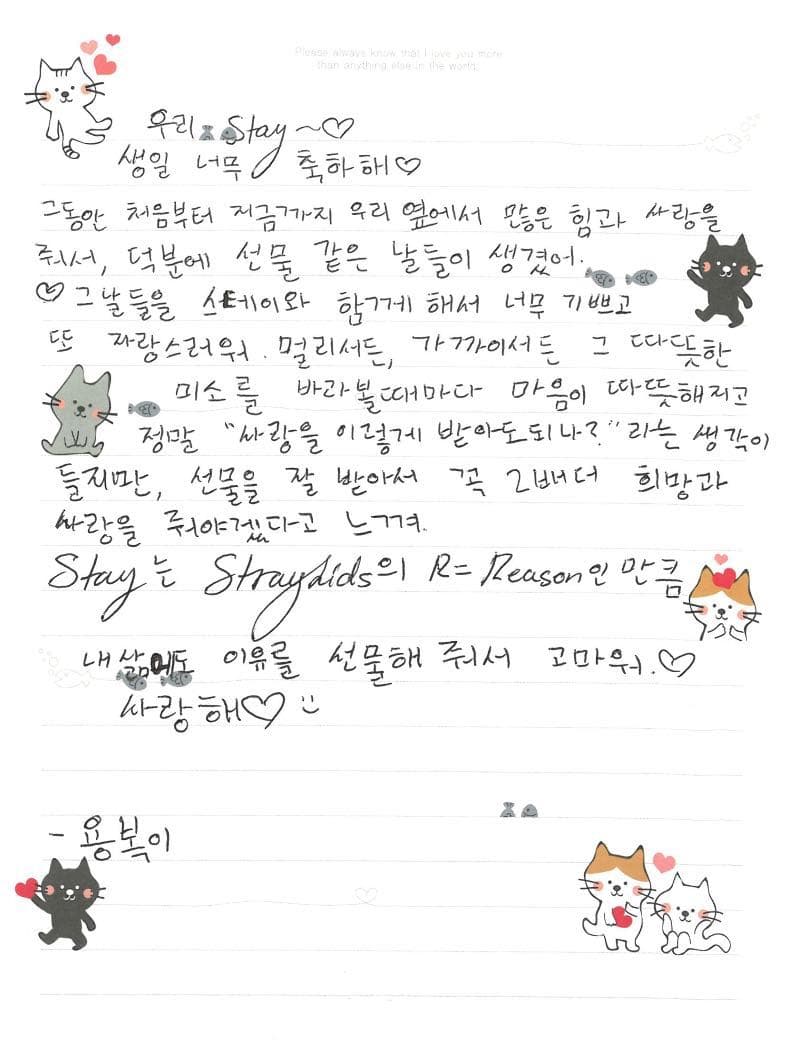 Please always know that I love you more
than anything else in the world.
우리 Stay ~♡
생일 너무 축하해♡
그동안 처음부터 지금까지 우리 옆에서 많은 힘과 사랑을
줘서, 덕분에 선물 같은 날들이 생겼어.
♡ 그 날들을 스테이와 함께 해서 너무 기쁘고
또 자랑스러워. 멀리서든, 가까이서든 그 따뜻한
미소를 바라볼때마다 마음이 따뜻해지고
정말 "사랑을 이렇게 받아도되나?"라는 생각이
들지만, 선물을 잘 받아서 꼭 2배더 희망과
사랑을 줘야겠다고 느껴.
Stay는 Straykids의 R= Reason인 만큼
내 삶에도 이유를 선물해 줘서 고마워.♡
사랑해♡ :)
- 용복이